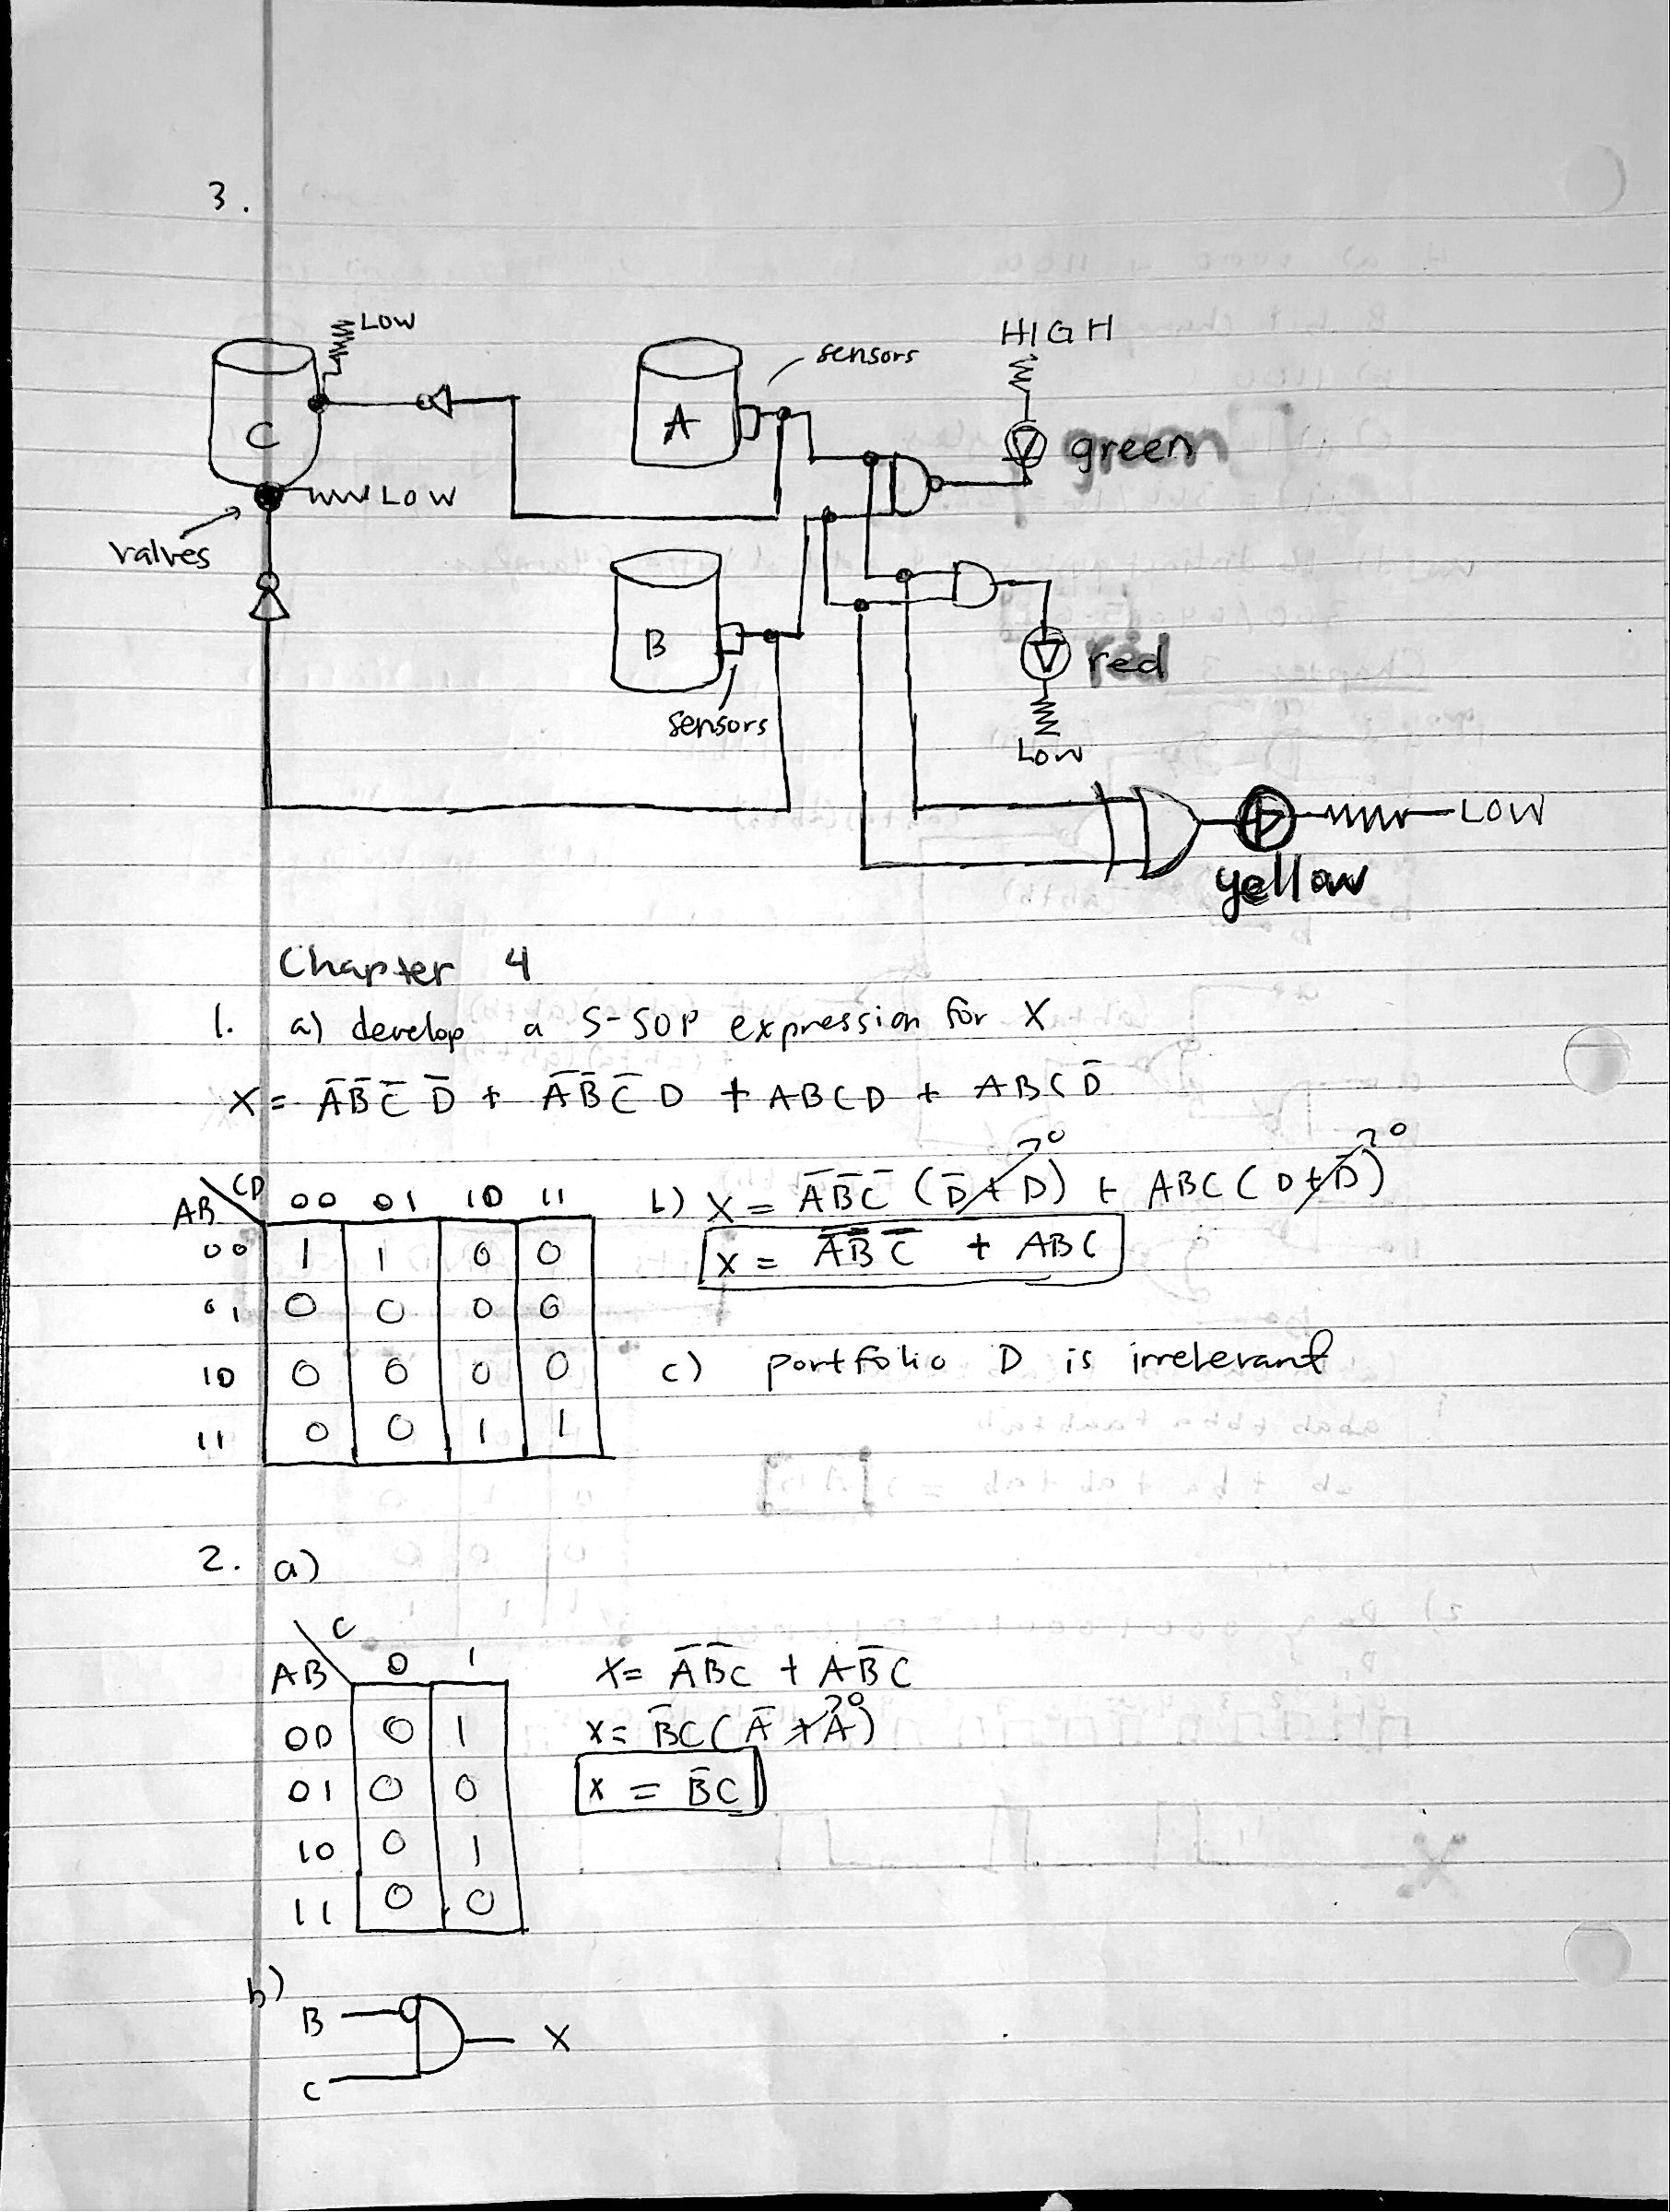 3.
LOW
C
LOW
valves
A
sensors
HIGH
green
B
sensors
red
LOW
LOW
yellow
Chapter 4
1. a) develop a S-SOP expression for X
X = A̅B̅C̅D̅ + A̅B̅C̅D + ABCD + ABCD̅
AB\CD 00 01 10 11
00 1 1 0 0
01 0 0 0 0
10 0 0 0 0
11 0 0 1 1
b) X = A̅B̅C̅ (D̅+D) + ABC (D+D̅)
0 0
X = A̅B̅C̅ + ABC
c) portfolio D is irrelevant
2. a)
AB\C 0 1
00 0 1
01 0 0
10 0 1
11 0 0
X = A̅B̅C + AB̅C
X = B̅C(A̅+A) 0
X = B̅C
b)
B
X
C